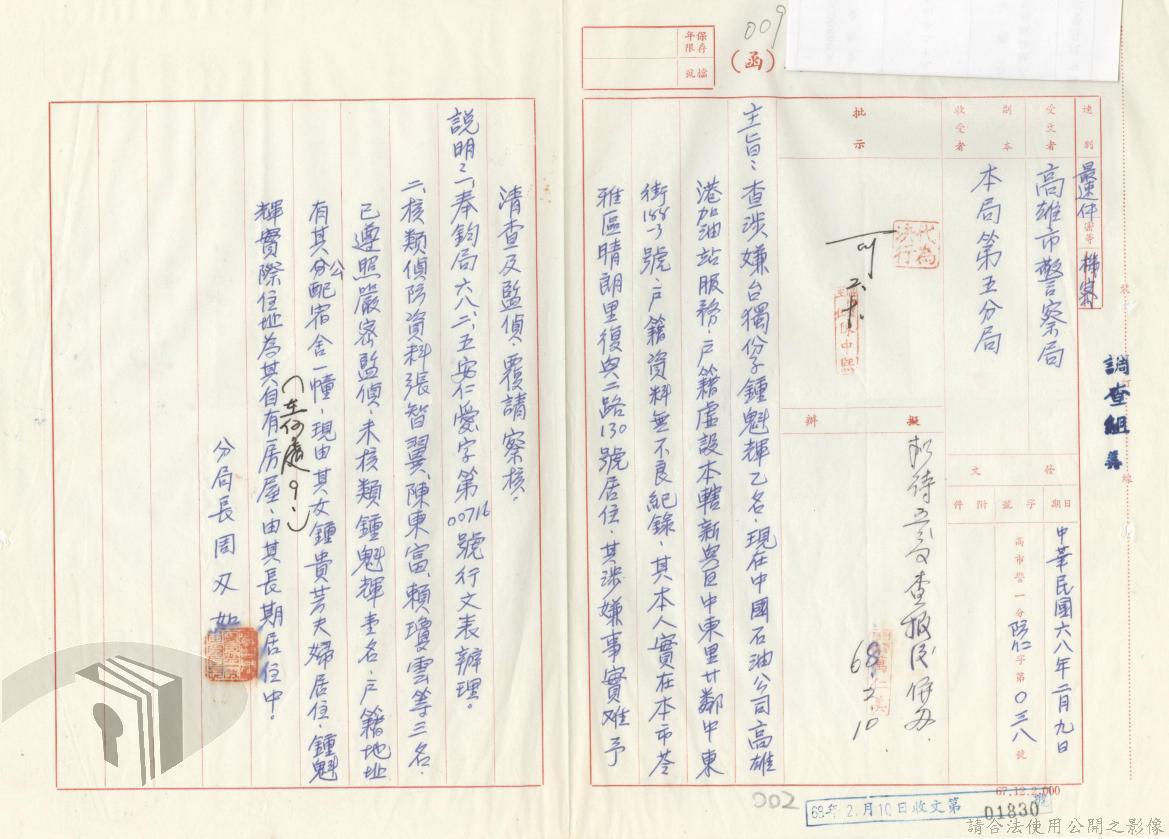 009
(函)
保存年限
檔號
速別
最速件
密等
機密
受文者
高雄市警察局
副本收受者
本局第五分局
發文
日期
中華民國六八年二月九日
字號
高市警一分防仁字第〇三八號
附件
批示
代為決行
擬辦
68.2.10.
調查組
裝
訂
線
主旨:查涉嫌台獨份子鍾魁輝乙名,現在中國石油公司高雄
港加油站服務,戶籍虛設本轄新興區中東里廿鄰中東
街188-3號,戶籍資料無不良紀錄,其本人實在本市苓
雅區晴朗里復興二路130號居住,其涉嫌事實难予
清查及監偵,覆請察核。
說明:一、奉鈞局六八、二、五安仁愛字第00716號行文表辦理。
二、核類偵防資料張智翼、陳東富、賴瓊雲等三名,
已遵照嚴密監偵,未核類鍾魁輝壹名,戶籍地址
有其公分配宿舍一幢,現由其女鍾貴芳夫婦居住,鍾魁
(在何處?)
輝實際住址為其自有房屋,由其長期居住中。
分局長周又如
67.12.2,000
002
68年2月10日收文第01830號
請合法使用公開之影像